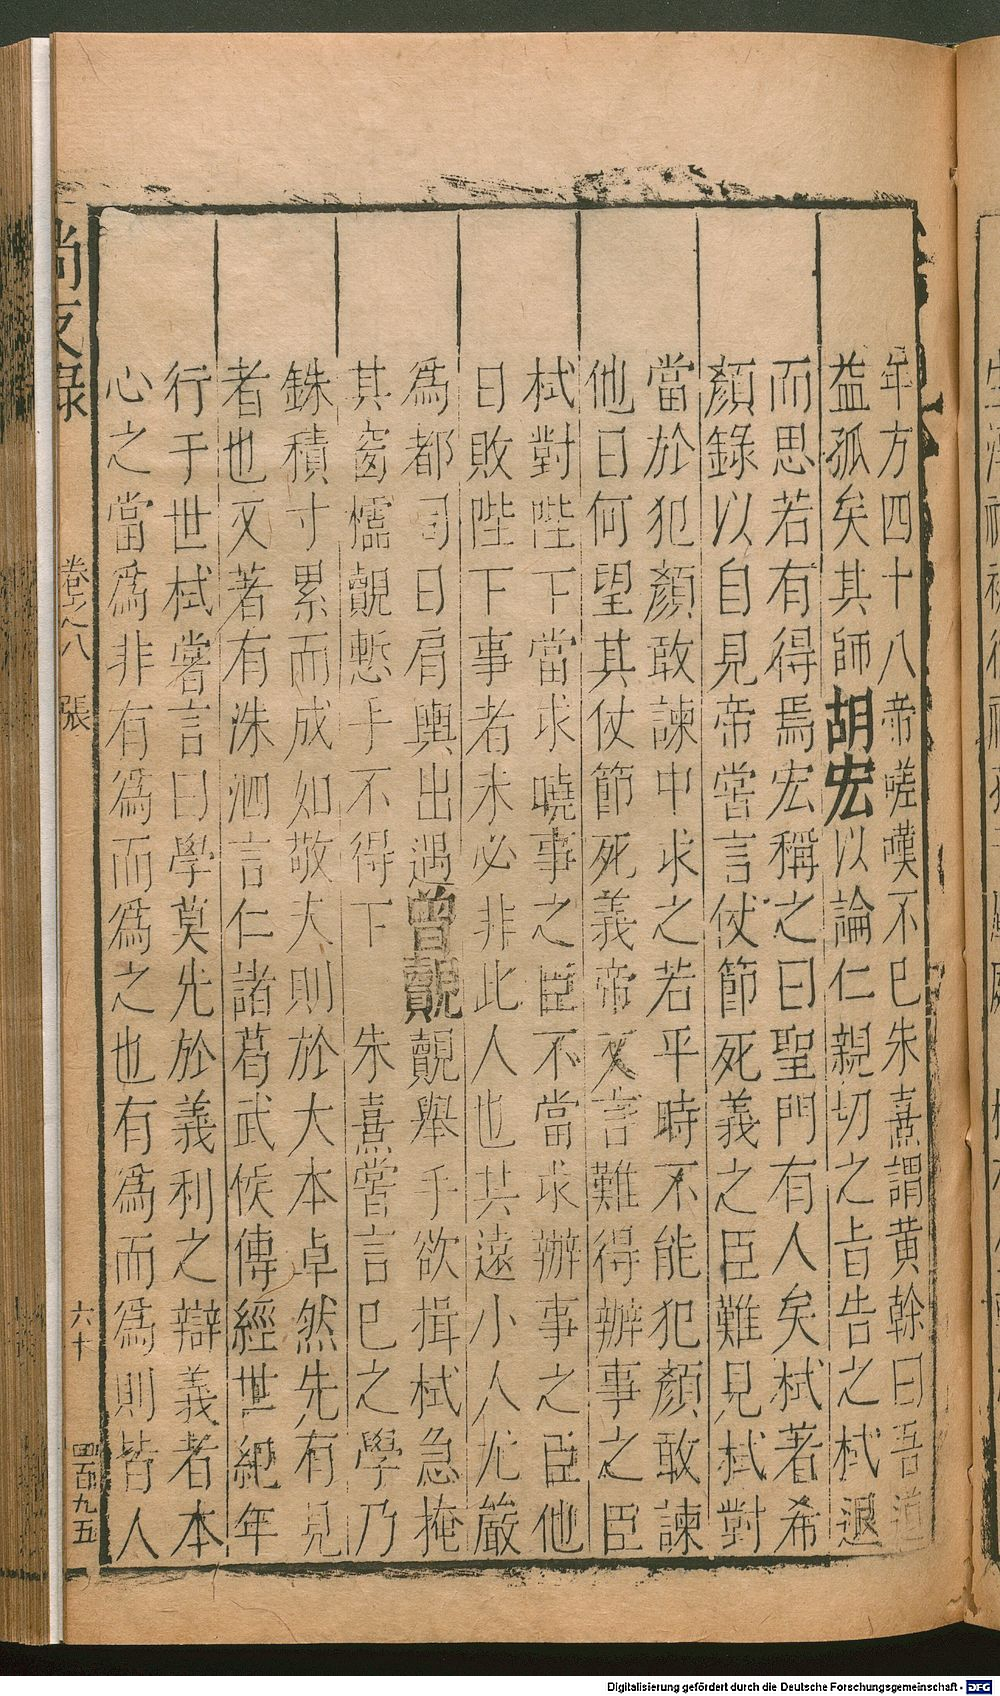 年方四十八帝嗟嘆不已朱熹謂黄榦曰吾道
益孤矣其師胡宏以論仁親切之旨告之栻退
而思若有得焉宏稱之曰聖門有人矣栻著希
顏錄以自見帝嘗言仗節死義之臣難見栻對
當於犯顏敢諫中求之若平時不能犯顏敢諫
他日何望其仗節死義帝又言難得辦事之臣
栻對陛下當求曉事之臣不當求辦事之臣他
日敗陛下事者未必非此人也其遠小人尤嚴
爲都司日肩輿出遇曾覿覿舉手欲揖栻急掩
其窗櫺覿慙手不得下　朱熹嘗言己之學乃
銖積寸累而成如敬夫則於大本卓然先有見
者也又著有洙泗言仁諸葛武侯傳經世紀年
行于世栻嘗言曰學莫先於義利之辯義者本
心之當爲非有爲而爲之也有爲而爲則皆人
尚友錄　卷之八　張　六十　四百九五
Digitalisierung gefördert durch die Deutsche Forschungsgemeinschaft - DFG